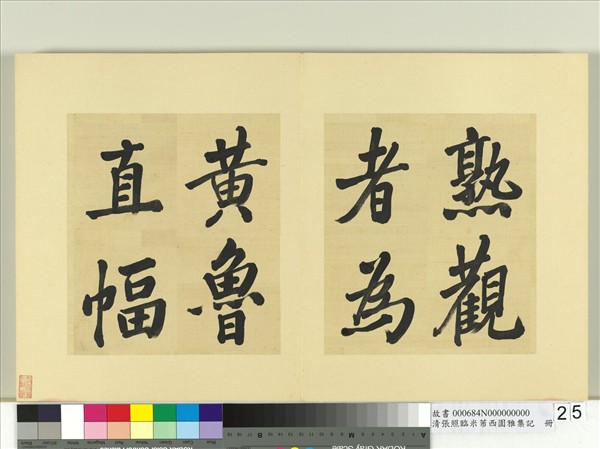 熟觀
者為
黃魯
直幅
故書 000684N000000000
清張照臨米芾西園雅集記 冊
25